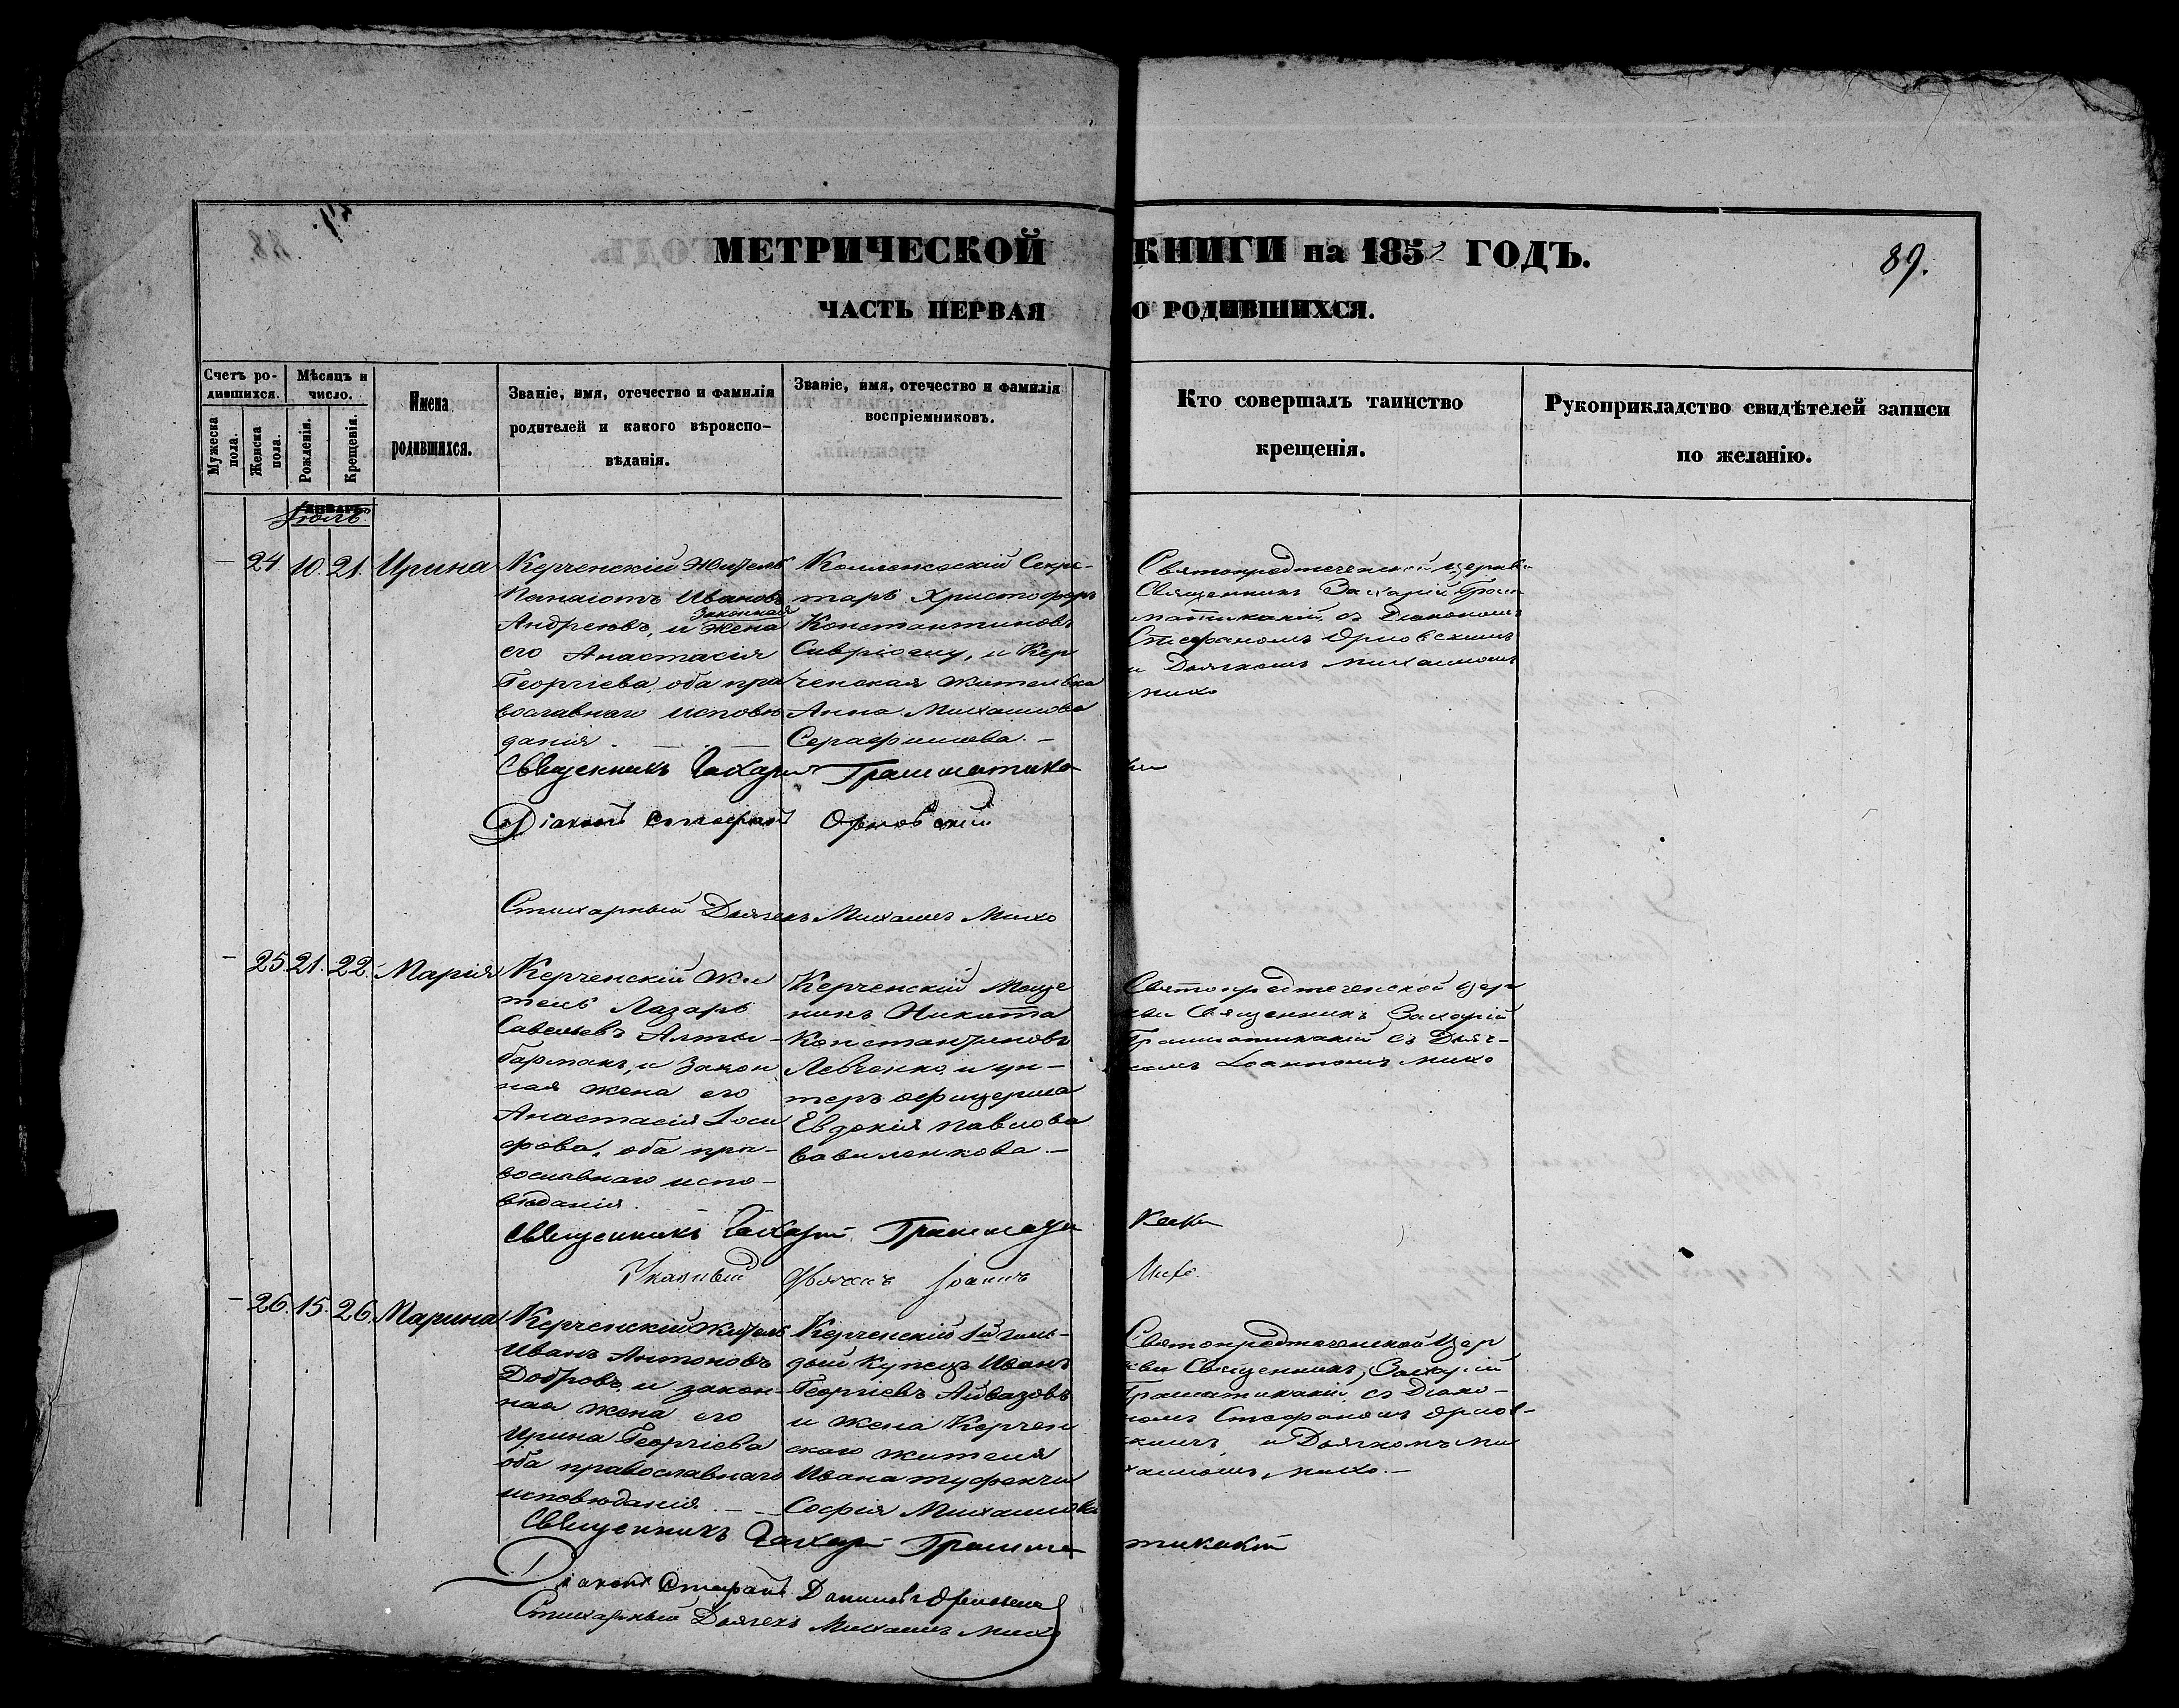 МЕТРИЧЕСКОЙ КНИГИ на 1852 ГОДЪ.
89.
ЧАСТЬ ПЕРВАЯ О РОДИВШИХСЯ.
Счетъ ро-
дившихся.
Мужеска пола.
Женска пола.
Мѣсяцъ и
число.
Рожденія.
Крещенія.
Имена
родившихся.
Званіе, имя, отечество и фамилія
родителей и какого вѣроиспо-
вѣданія.
Званіе, имя, отечество и фамилія
воспріемниковъ.
Кто совершалъ таинство
крещенія.
Рукоприкладство свидѣтелей записи
по желанію.
Іюль.
— 24. 10. 21. Ирина
Керченскій житель
Панаіотъ Ивановъ
законная
Андреевъ, и жена
его Анастасія
Георгіева, оба пра
вославнаго исповѣ
данія. — —
Коллежскій Секре-
тарь Христофоръ
Константиновъ
и Кер
ченская жителька
Анна Михаилова
Серафимова. —
Святопредтеченской церкви
Священникъ Захарій Грам
матикакій, съ Діакономъ
Стефаномъ Орловскимъ
и Дьячкомъ Михаиломъ
Михо
Священникъ Захарій Грамматика
ки
Діаконъ Стефанъ Орловскій
Стихарный Дьячекъ Михаилъ Михо
— 25. 21. 22. Марія
Керченскій жи
тель Лазарь
Савельевъ Алты-
бармакъ, и закон
ная жена его
Анастасія Іоси
фова, оба пра-
вославнаго испо-
вѣданія.
Керченскій Меще
нинъ Никита
Константиновъ
Левченко, и ун-
теръ офицерша
Евдокія Павлова
Вавиленкова. —
Святопредтеченской цер
кви Священникъ Захарій
Грамматикакій съ Дьяч-
комъ Іоанномъ Михо
Священникъ Захарій Граммати
каки
Указный Дьячекъ Іоаннъ Михо.
— 26. 15. 26. Марина
Керченскій житель
Иванъ Антоновъ
Добровъ, и закон-
ная жена его
Ирина Георгіева
оба православнаго
исповѣданія. —
Керченскій 1й гиль-
дыи Купецъ Иванъ
Георгіевъ Айвазовъ
и жена Керчен
скаго жителя
Ивана Туфекчи
София Михайлова
Святопредтеченской Цер
кви Священникъ, Захарій
Граматикакій съ Діако-
номъ Стефаномъ Орлов-
скимъ, и Дьячкомъ Ми
хаиломъ Михо. —
Священникъ Захарій Грамма
тикакій
Діаконъ Стефанъ
Стихарный Дьячекъ Михаилъ Михо